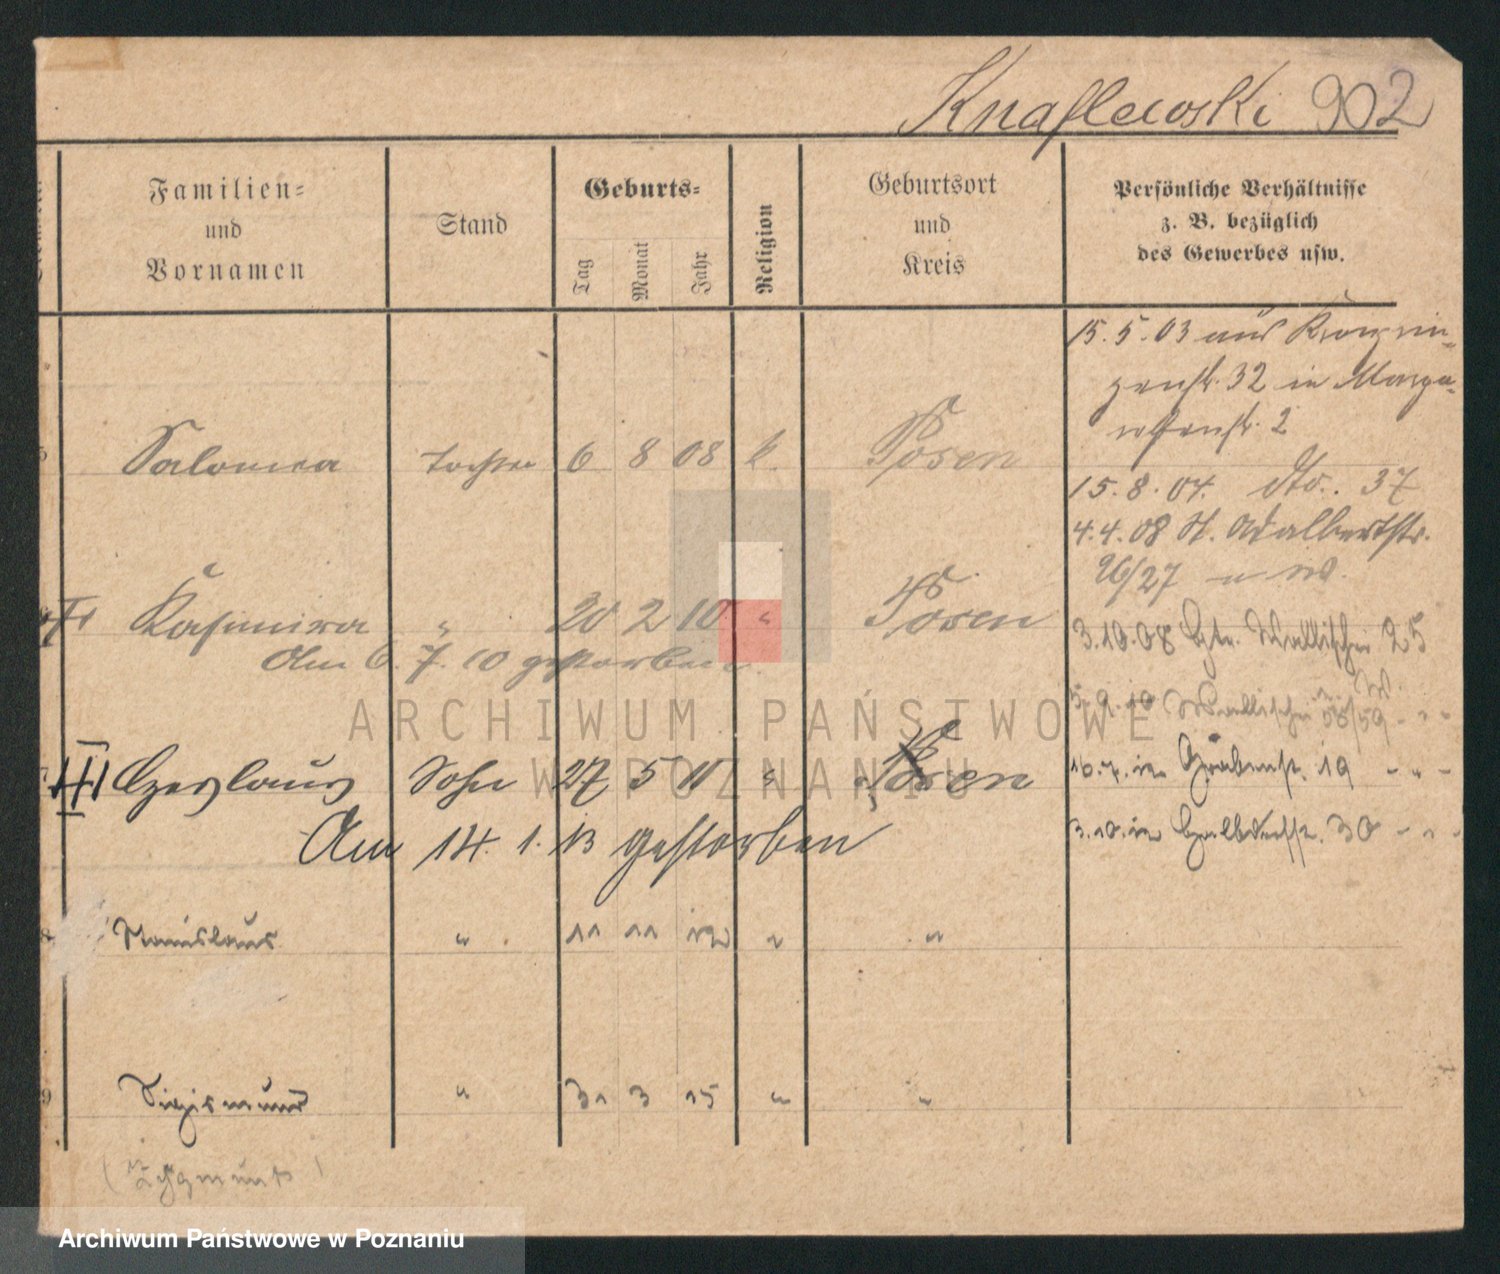 Knaflewski 902
Familien=
und
Vornamen
Stand
Geburts=
Tag
Monat
Jahr
Religion
Geburtsort
und
Kreis
Persönliche Verhältnisse
z. B. bezüglich
des Gewerbes usw.
15.5.03 aus Kronprin-
zenstr. 32 in Marga-
rethenstr. 2
Salomea Tochter 6 8 08 k. Posen
15.8.04. dto. 37
4.4.08 St. Adalbertstr.
26/27
Kasimira " 20 2 10 " Posen
Am 6. 7. 10 gestorben
3.10.08 Wallischei 25
3.9.10 Wallischei 58/59 - " -
Czeslaus Sohn 27 5 11 " Posen
16.7. Grabenstr. 19 - " -
Am 14. 1. 13 gestorben
3.10. 30 - " -
Stanislaus " 11 11 12 " "
9 Sigismund " 31 3 15 " "
(Zygmunt)
ARCHIWUM PAŃSTWOWE
W POZNANIU
Archiwum Państwowe w Poznaniu